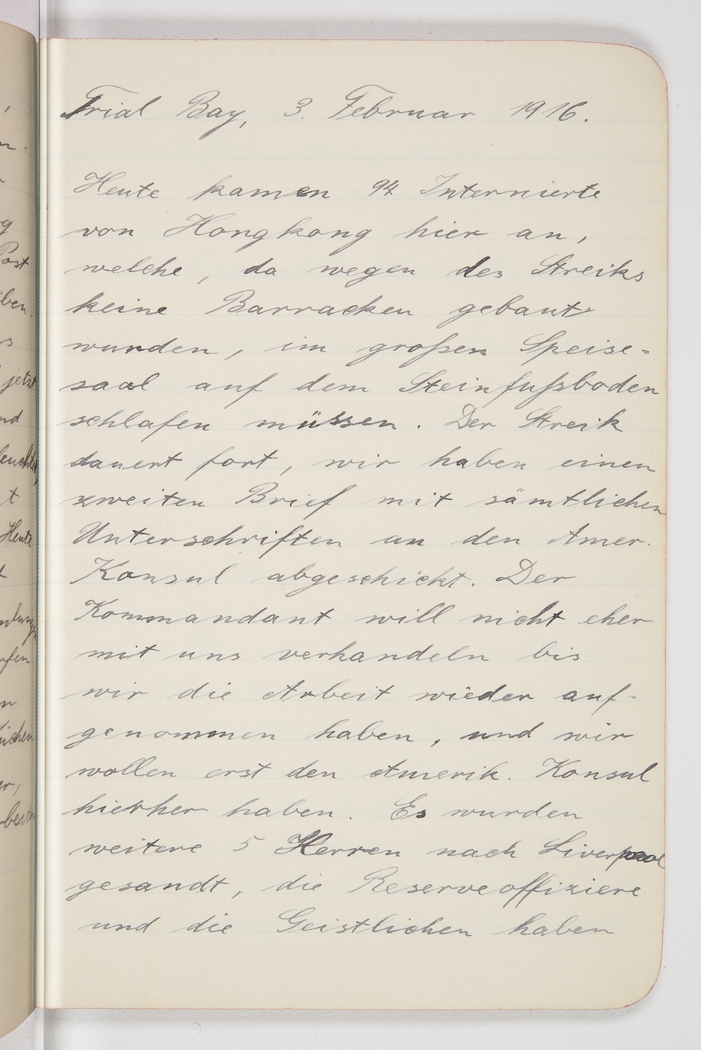 Trial Bay, 3. Februar 1916.
Heute kamen 94 Internierte
von Hongkong hier an,
welche, da wegen des Streiks
keine Barracken gebaut
wurden, im großen Speise-
saal auf dem Steinfußboden
schlafen müssen. Der Streik
dauert fort, wir haben einen
zweiten Brief mit sämtlichen
Unterschriften an den Amer.
Konsul abgeschickt. Der
Kommandant will nicht eher
mit uns verhandeln bis
wir die Arbeit wieder auf-
genommen haben, und wir
wollen erst den Amerik. Konsul
hierher haben. Es wurden
weitere 5 Herren nach Liverpool
gesandt, die Reserveoffiziere
und die Geistlichen haben